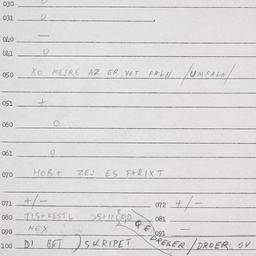 030 0
031 0
040 —
041 0
050 XO MEJRE AZ ER VET FALN /UMFALN/
051 +
060 0
061 0
070 HOB+ ZEJ ES FARIXT
071 +/- 072 +/-
080 TIS+KESTL 081
090 NEX 091 —
100 DI BET ) SKRIPET DREGER / DROER OV